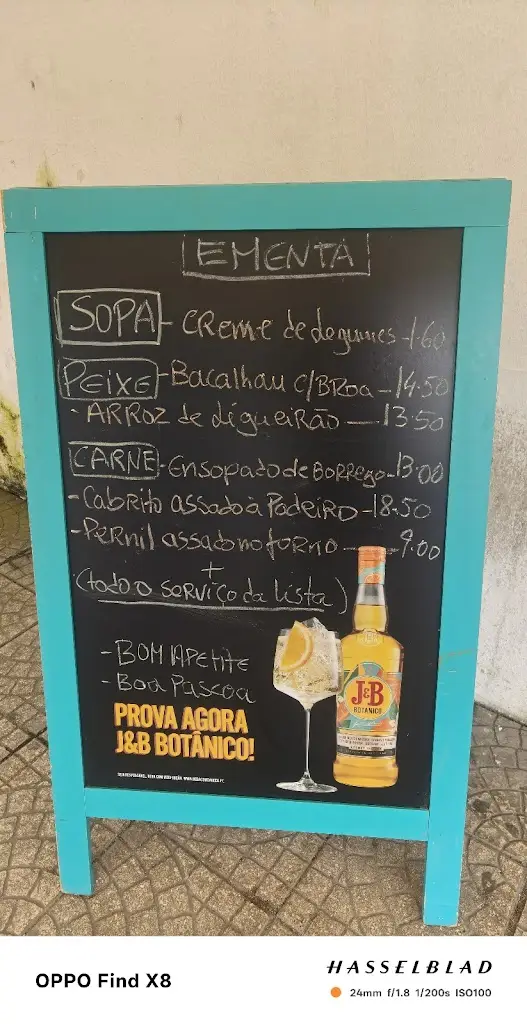 EMENTA
SOPA - CReme de legumes - 1.60
PEIXE - Bacalhau c/BRoa - 14.50
- ARROZ de ligueiRão - 13.50
CARNE - Ensopado de BORRego - 13.00
- Cabrito assado à PadeiRo - 18.50
- Pernil assado no forno - 9.00
+
(todo o serviço da lista)
- BOM APETITE
- Boa Pascoa
PROVA AGORA
J&B BOTÂNICO!
J&B
BOTANICO
OPPO Find X8
HASSELBLAD
24mm f/1.8 1/200s ISO100